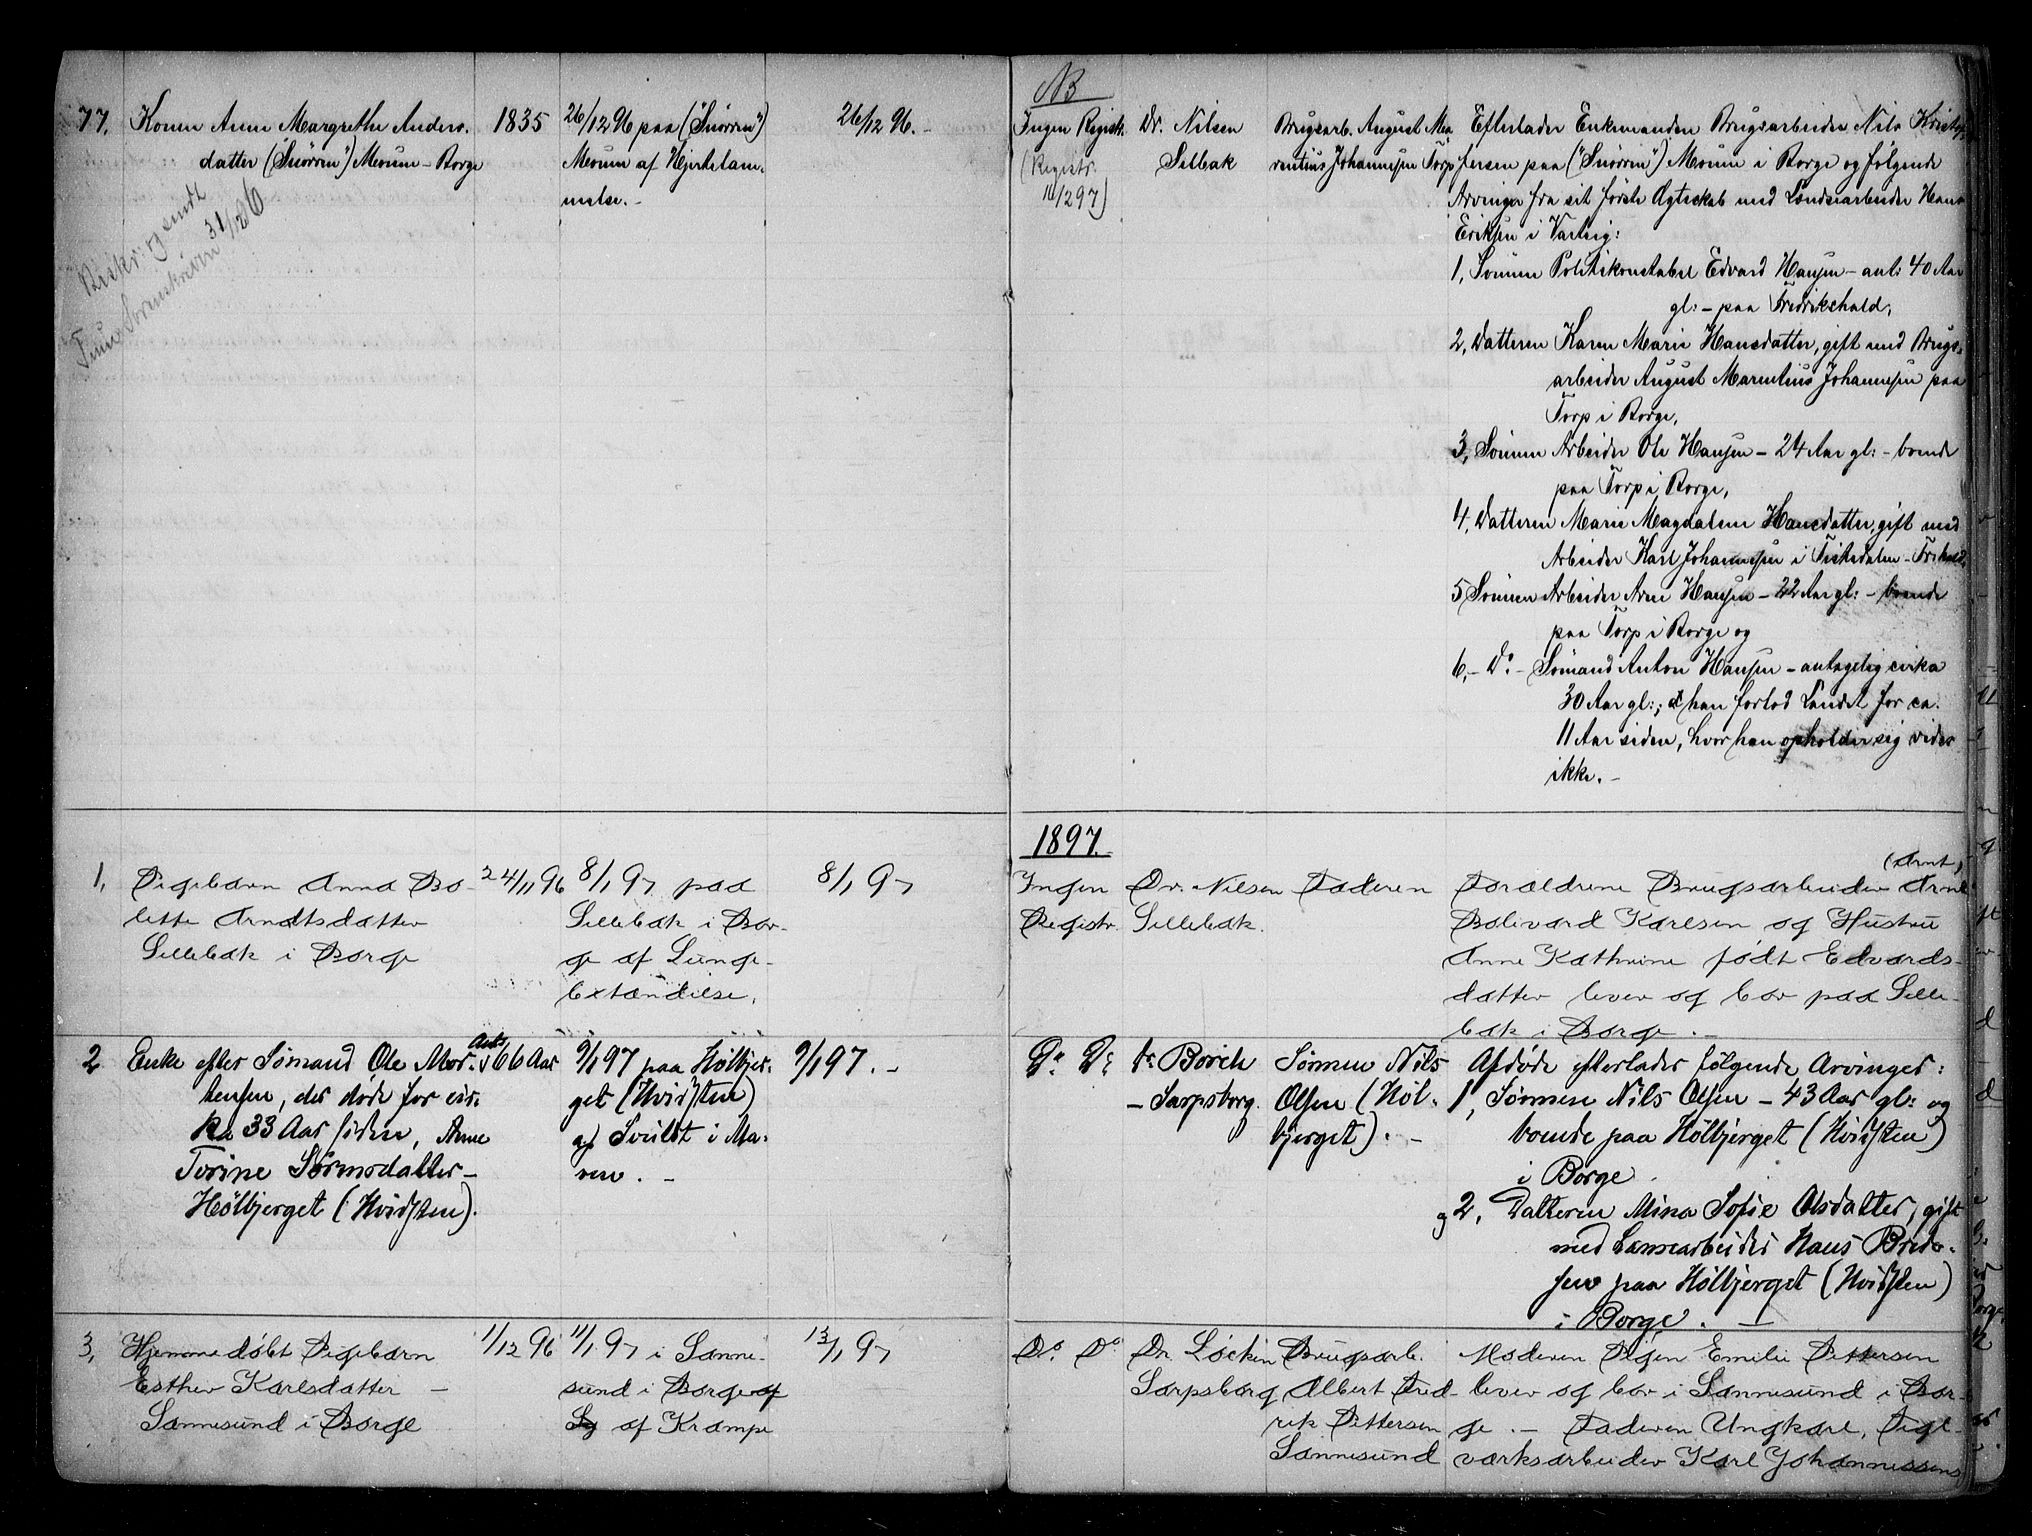 77. Konen Anne Margrethe Anders-
datter ("Snörren") Moum - Borge
1835
26/12 96 paa ("Snörren")
Moum af Hjertelam-
melse. -
26/12 96. -
Beskr: og sendt
Sorenskriven 31/12 96
NB
Ingen Registr.
(Registr.
16/2 97)
Dr. Nilsen
Selbak
Brugsarb. August Ma
rentius Johannesen Torp
Efterlader Enkemanden Brugsarbeider Nils Kristof
fersen paa ("Snörren") Moum i Borge og følgende
Arvinger fra sit første Ægteskab med Lændsearbeider Hans
Eriksen i Varteig:
1, Sønnen Politikonstabel Edvard Hansen - ant: 40 Aar
gl: - paa Fredrikshald,
2, Datteren Karen Marie Hansdatter, gift med Brugs-
arbeider August Marentius Johannesen paa
Torp i Borge,
3, Sönnen Arbeider Ole Hansen - 24 Aar gl: - boende
paa Torp i Borge,
4, Datteren Marie Magdalene Hansdatter, gift med
Arbeider Karl Johannesen i Fiskedalen - Fr:hald,
5 Sönnen Arbeider Arne Hansen - 22 Aar gl: - boende
paa Torp i Borge og
6, - Do - Sömand Anton Hansen - antagelig cirka
30 Aar gl:; han forlod Landet for ca.
11 Aar siden, hvor han opholder sig vides
ikke. -
1897.
1, Pigebarn Anna Bo-
lette Arndtsdatter
Sellebak i Borge
24/11 96
8/1 97 paa
Sellebak i Bor-
ge af Lunge-
betændelse.
8/1 97
Ingen
Registr.
Dr. Nilsen
Sellebak.
Faderen
(Arnt)
Forældrene Brugsarbeider Arne
Bolevard Karlsen og Hustru
Anne Kathrine født Edvards-
datter lever og bor paa Selle-
bak i Borge. -
2 Enke efter Sømand Ole Mor-
tensen, der døde for cir-
ka 33 Aar siden, Anne
Torine Sørensdatter -
Hølbjerget (Hvidsten).
Ant.
66 Aar
9/1 97 paa Hølbjer-
get (Hvidsten)
af Svulst i Ma-
ven. -
9/1 97. -
Do Do
Dr Borch
- Sarpsborg.
Sønnen Nils
Olsen (Høl-
bjerget). -
Afdøde efterlader følgende Arvinger:
1, Sønnen Nils Olsen - 43 Aar gl: og
boende paa Hølbjerget (Hvidsten)
i Borge
og 2, Datteren Mina Sofie Olsdatter, gift
med Lænsearbeider Hans Brede-
sen paa Hølbjerget (Hvidsten)
i Borge. -
3, Hjemmedøbt Pigebarn
Esther Karlsdatter -
Sannesund i Borge
11/12 96
11/1 97 i Sanne-
sund i Borge af
af Krampe
13/1 97
Do Do
Dr. Löcken
Sarpsborg
Brugsarb.
Albert Fred-
rik Pettersen
Sannesund
Moderen Pigen Emilie Pettersen
lever og bor i Sannesund i Bor-
ge. - Faderen Ungkarl, Tegl-
værksarbeider Karl Johannessens